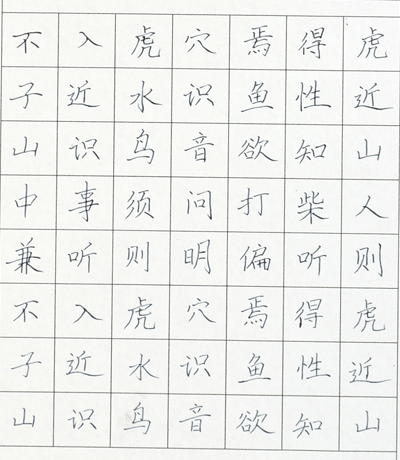 不入虎穴焉得虎
子近水识鱼性近
山识鸟音欲知山
中事须问打柴人
兼听则明偏听则
不入虎穴焉得虎
子近水识鱼性近
山识鸟音欲知山